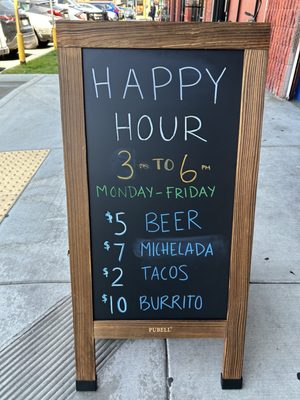 HAPPY
HOUR
3PM TO 6PM
MONDAY-FRIDAY
$5 BEER
$7 MICHELADA
$2 TACOS
$10 BURRITO
PUBELL®